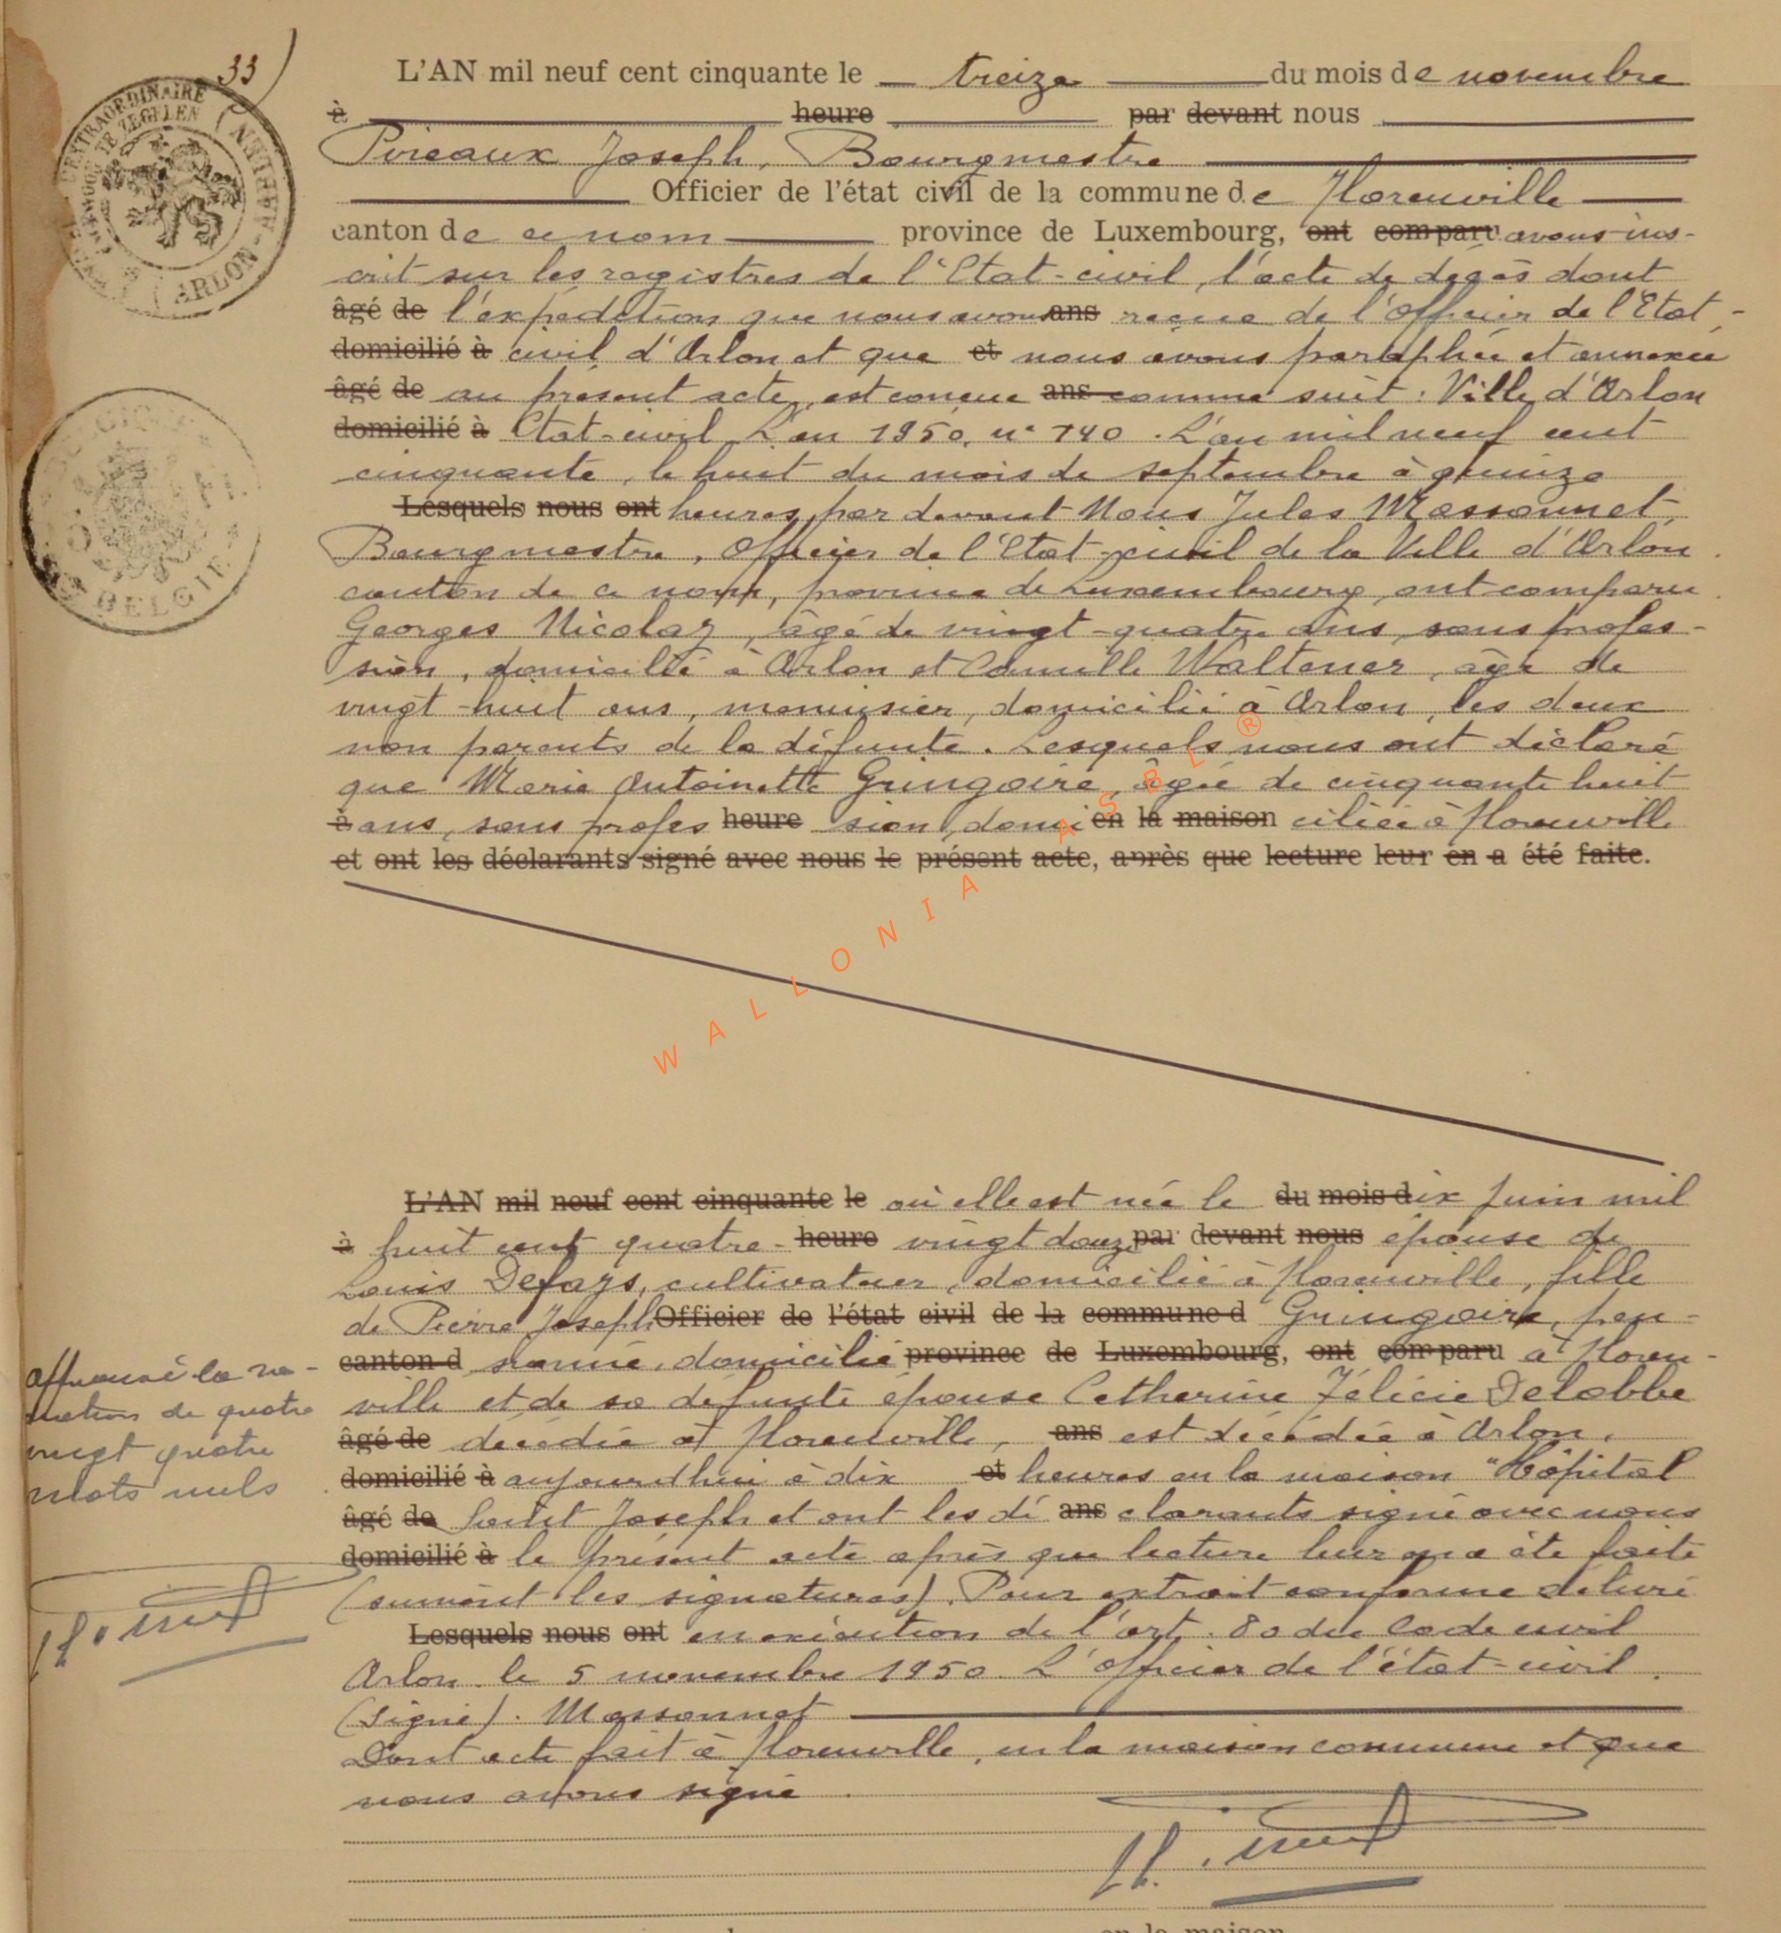 33)
L'AN mil neuf cent cinquante le treize du mois de novembre
à heure par devant nous
Pireaux Joseph, Bourgmestre
Officier de l'état civil de la commune de Florenville
canton de ce nom province de Luxembourg, ont comparu avons ins-
crit sur les registres de l'Etat-civil, l'acte de décès dont
âgé de l'expédition que nous avons ans reçue de l'Officier de l'Etat-
domicilié à civil d'Arlon et que et nous avons paraphée et annexée
âgé de au présent acte, est conçue ans comme suit : Ville d'Arlon
domicilié à Etat-civil L'an 1950, n° 740. L'an mil neuf cent
cinquante, le huit du mois de septembre à quinze
Lesquels nous ont heures, par devant Nous Jules Massonnet,
Bourgmestre, Officier de l'Etat-civil de la Ville d'Arlon,
canton de ce nom, province de Luxembourg, ont comparu
Georges Nicolay, âgé de vingt-quatre ans, sans profes-
sion, domicilié à Arlon et Camille Waltener, âgé de
vingt-huit ans, menuisier, domicilié à Arlon, les deux
non parents de la défunte. Lesquels nous ont déclaré
que Marie Antoinette Gringoire, âgée de cinquante huit
à ans, sans profes heure sion, domi en la maison ciliée à Florenville
et ont les déclarants signé avec nous le présent acte, après que lecture leur en a été faite.
WALLONIA ASBL ®
L'AN mil neuf cent cinquante le où elle est née le du mois d dix Juin mil
à huit cent quatre- heure vingt douze, par devant nous épouse de
Louis Defays, cultivateur, domicilié à Florenville, fille
de Pierre Joseph Officier de l'état civil de la commune d Gringoire, pen-
canton d sionné, domicilié province de Luxembourg, ont comparu à Floren-
ville et de sa défunte épouse Catherine Félicie Delobbe
âgé de décédée à Florenville, ans est décédée à Arlon,
domicilié à aujourdhui à dix et heures en la maison "Hôpital
âgé de Saint Joseph et ont les dé ans clarants signé avec nous
domicilié à le présent acte après que lecture leur en a été faite
(suivent les signatures). Pour extrait conforme délivré
Lesquels nous ont en exécution de l'art. 80 du Code civil
Arlon le 5 novembre 1950. L'Officier de l'état-civil.
(signé). Massonnet
Dont acte fait à Florenville, en la maison commune et que
nous avons signé
Approuvé la ra-
diation de quatre
vingt quatre
mots nuls
en la maison
ARLON
BELGIE